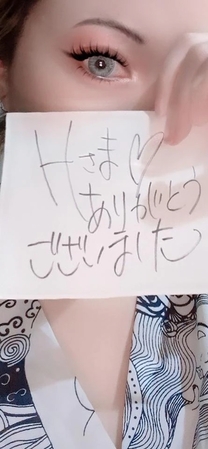 Hさま♡
ありがとう
ございました